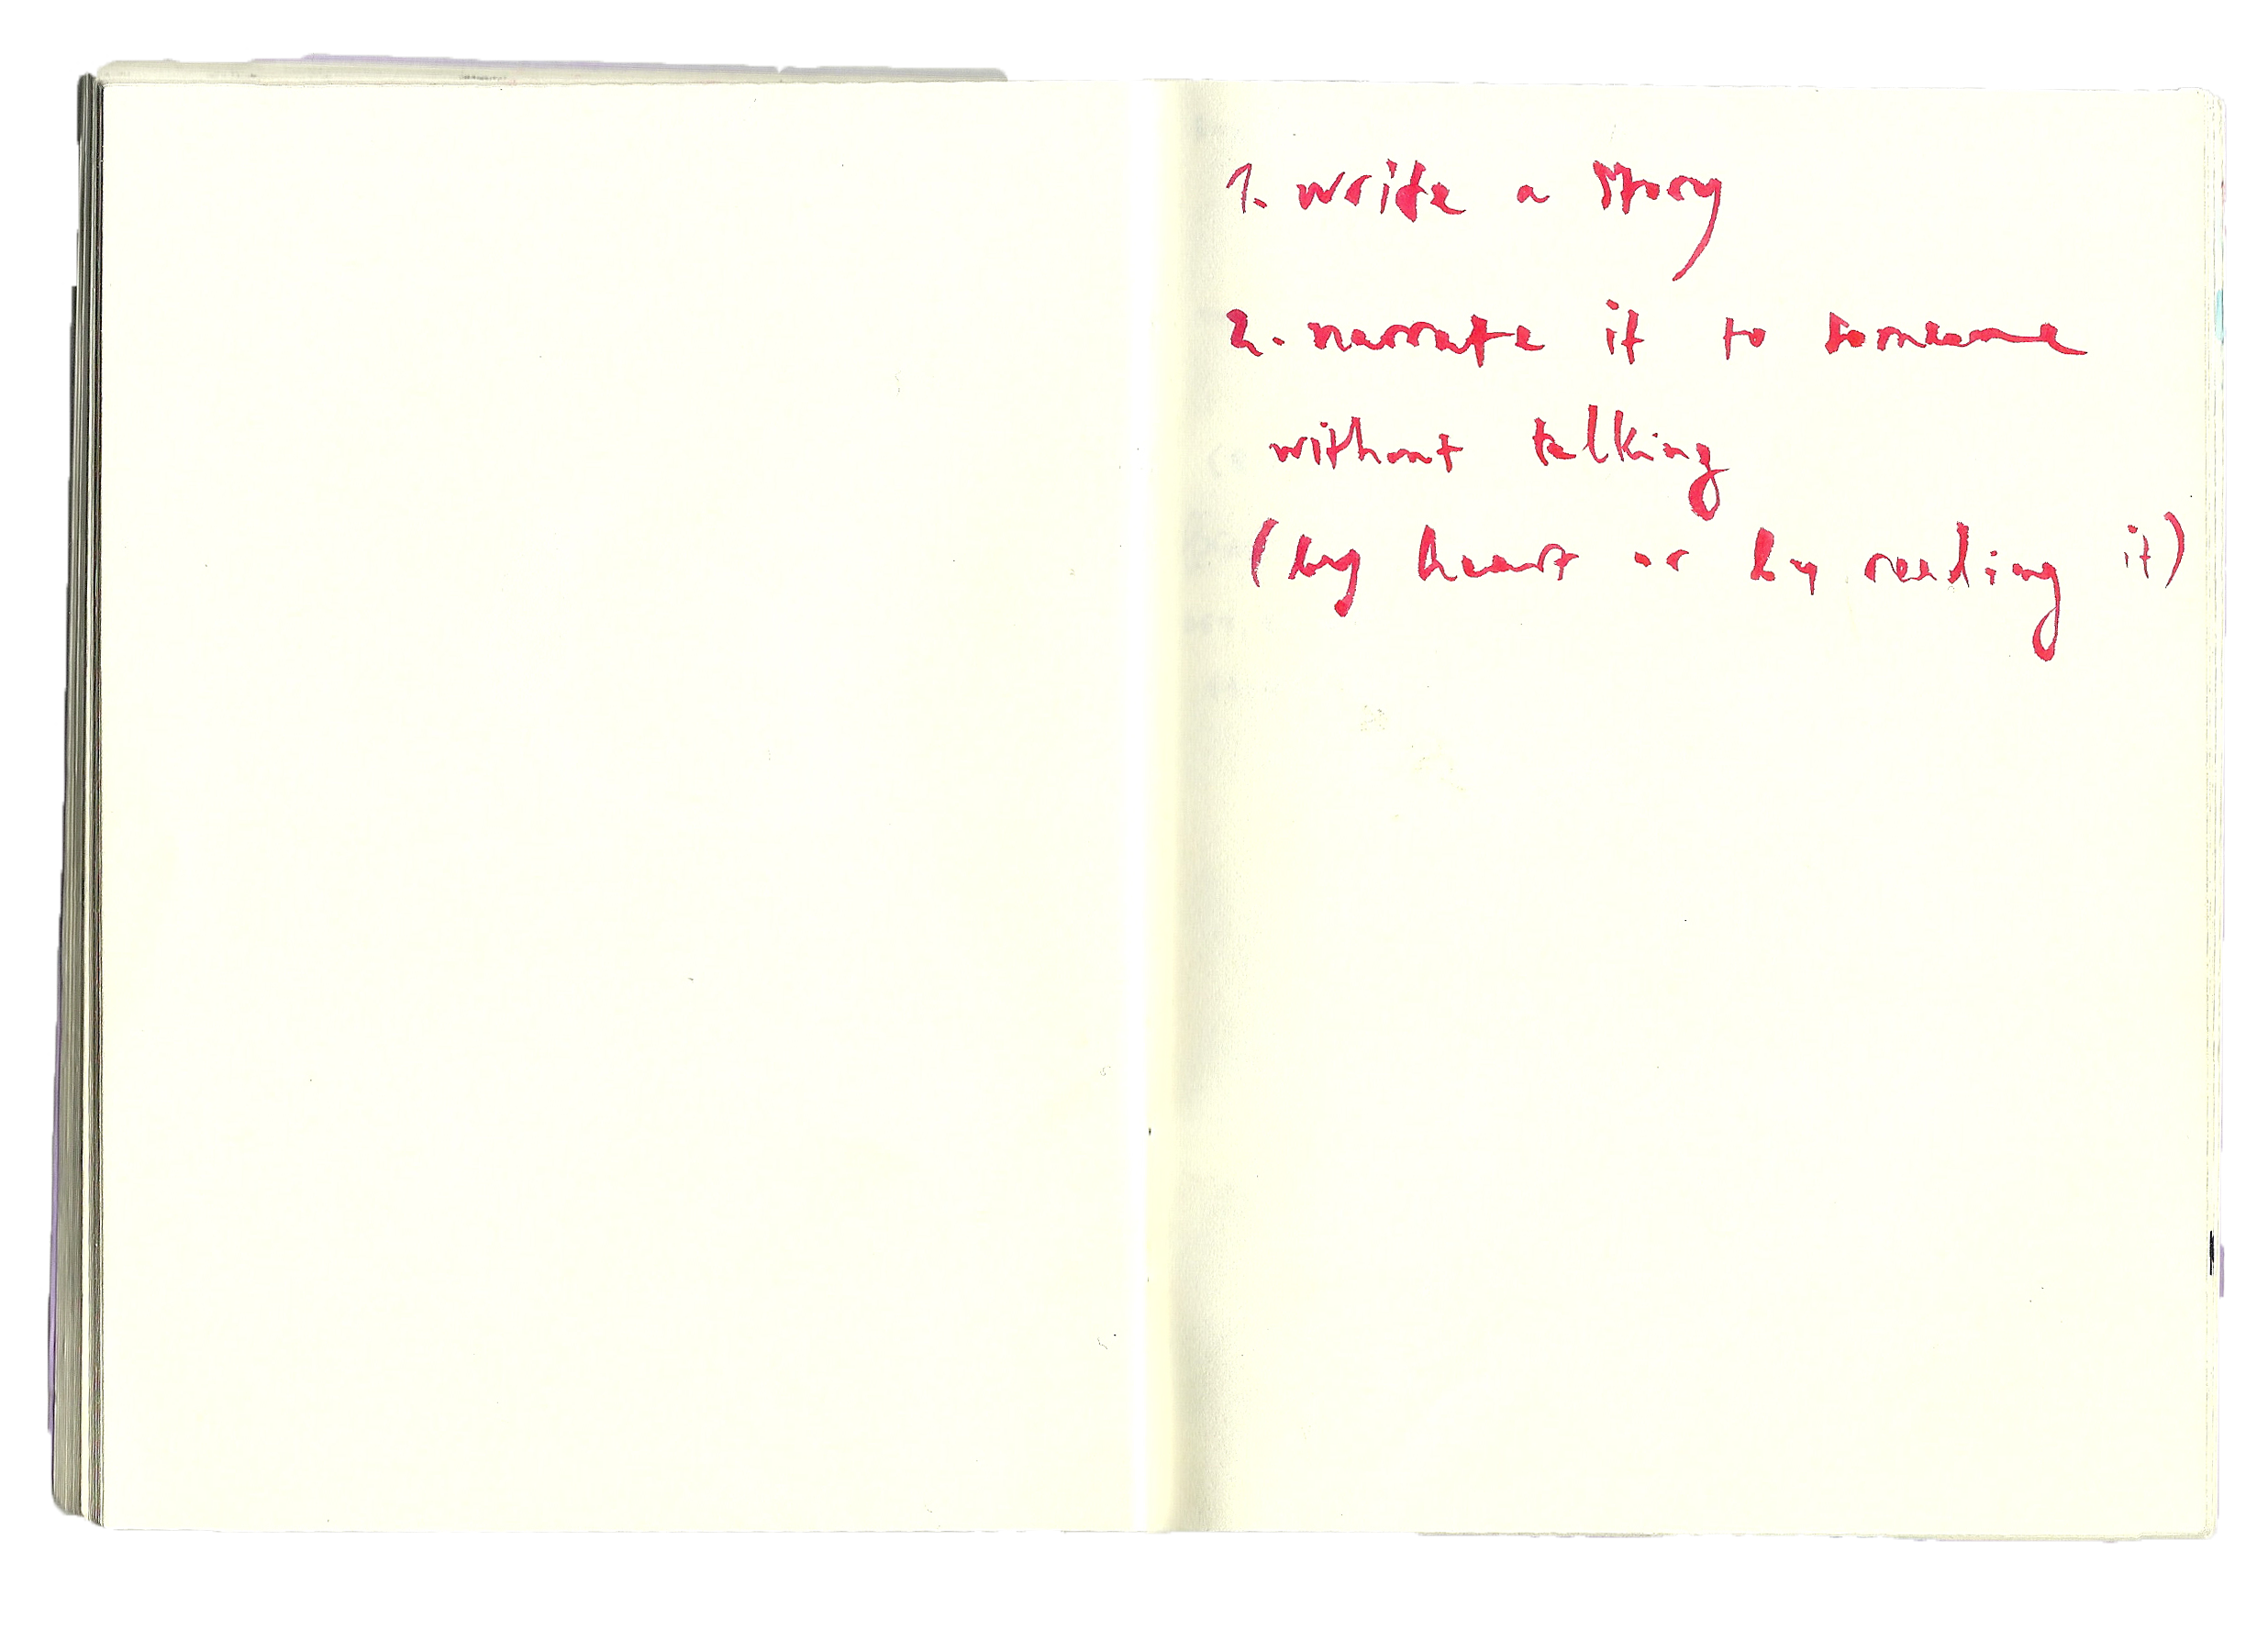 1. write a story
2. narrate it to someone
without talking
(by heart or by reading it)